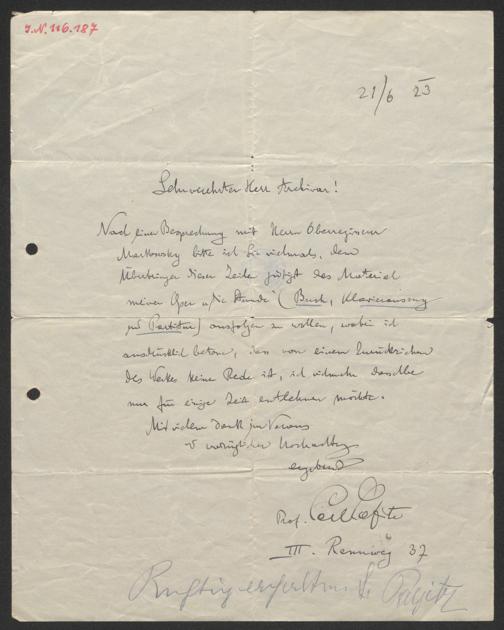 I.N. 116.187
21/6 23
Sehr verehrter Herr Archivar!
Nach einer Besprechung mit Herrn Oberregisseur
Markowsky bitte ich Sie vielmals, dem
Überbringer dieser Zeile gütigst das Material
meiner Oper " Stunde" (Buch, Klavierauszug
und Partitur) ausfolgen zu wollen, wobei ich
ausdrücklich betone, dass von einem Zurückziehen
des Werkes keine Rede ist, ich vielmehr dasselbe
nur für einige Zeit entlehnen möchte.
Mit vielem Dank im Voraus
vorzüglicher Hochachtung
ergebenst
Prof. Carl Lafite
III. Rennweg 37
Richtig erhalten